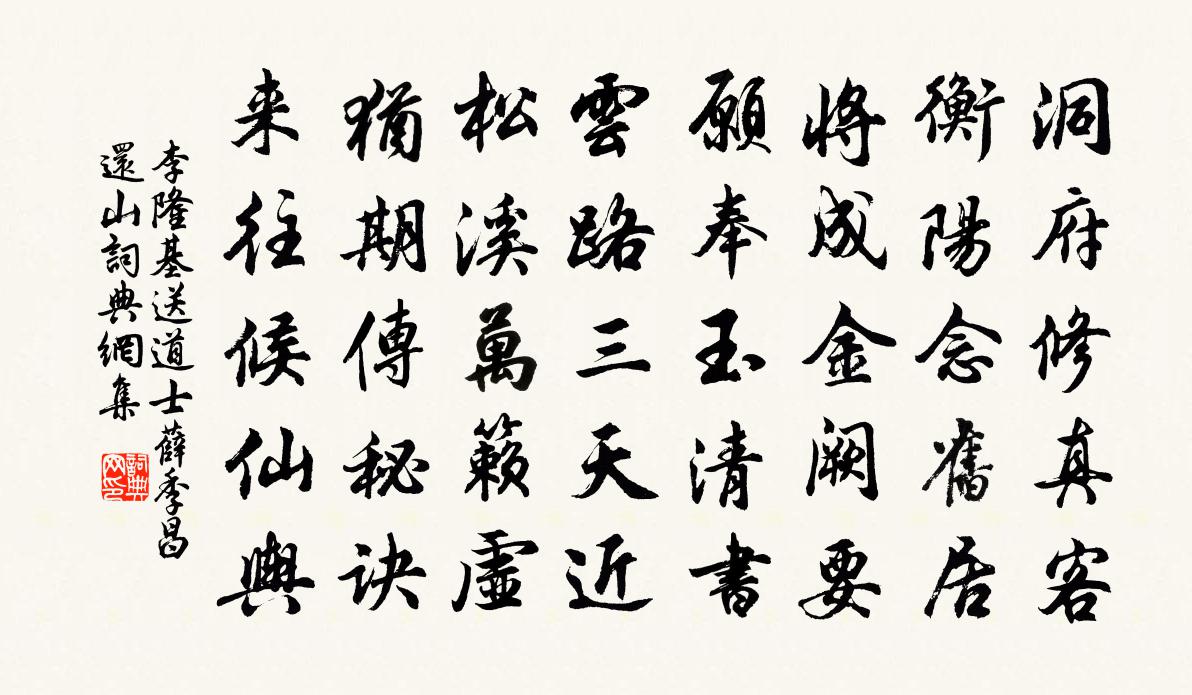 洞府修真客
衡陽念舊居
將成金闕要
願奉玉清書
雲路三天近
松溪萬籟虛
猶期傳秘訣
来往候仙輿
李隆基送道士薛季昌
還山詞典網集
詞典網印